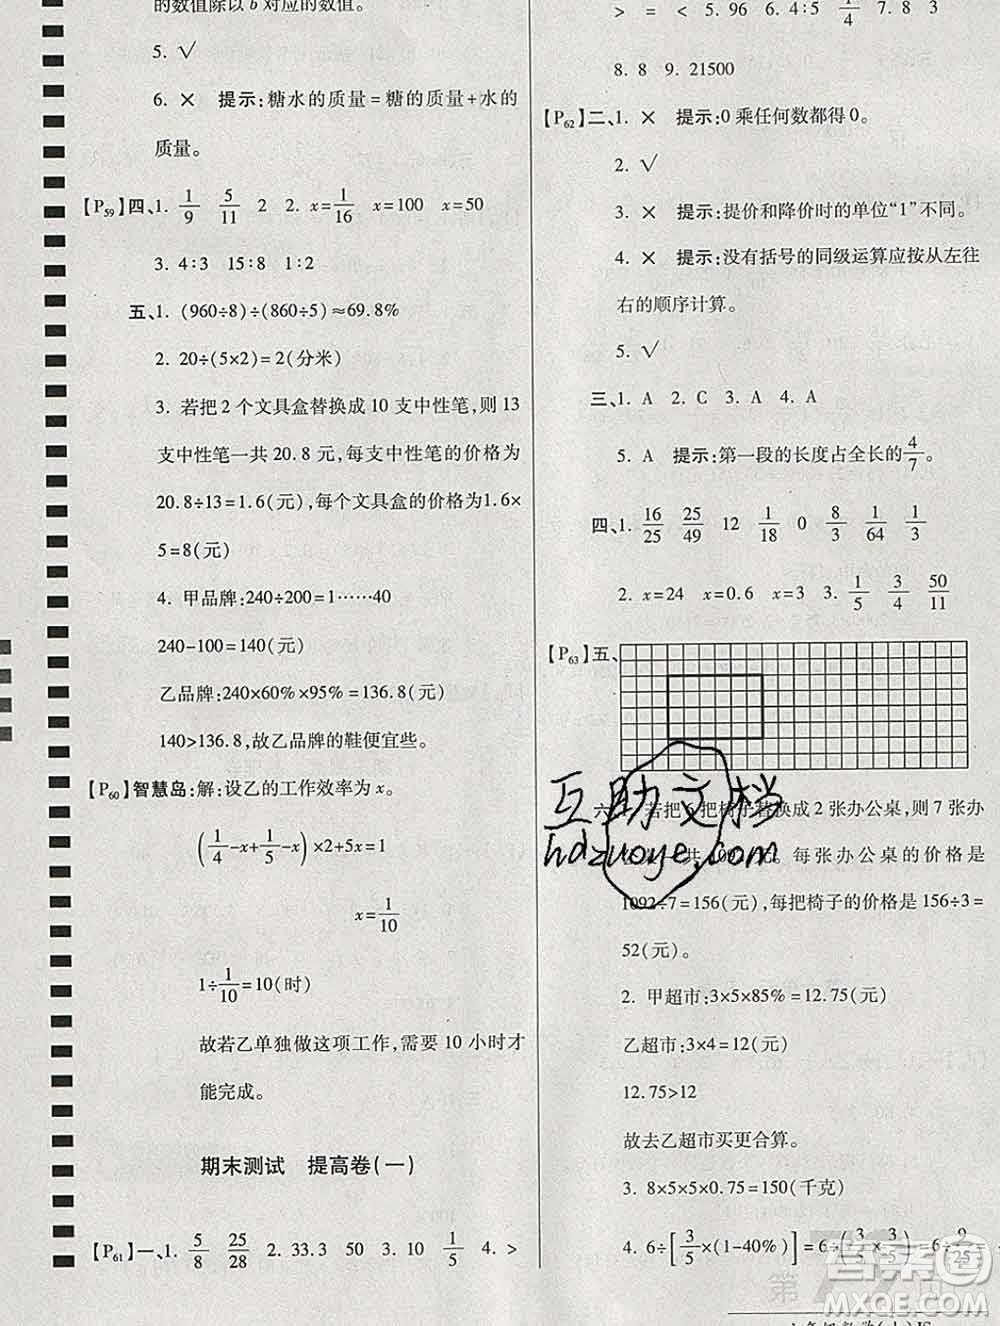 的数值除以 b 对应的数值。
5. √
6. × 提示:糖水的质量=糖的质量+水的
质量。
【P59】四、1. 1/9 5/11 2 2. x=1/16 x=100 x=50
3. 4∶3 15∶8 1∶2
五、1. (960÷8)÷(860÷5)≈69.8%
2. 20÷(5×2)=2(分米)
3. 若把 2 个文具盒替换成 10 支中性笔,则 13
支中性笔一共 20.8 元,每支中性笔的价格为
20.8÷13=1.6(元),每个文具盒的价格为1.6×
5=8(元)
4. 甲品牌:240÷200=1……40
240-100=140(元)
乙品牌:240×60%×95%=136.8(元)
140>136.8,故乙品牌的鞋便宜些。
【P60】智慧岛:解:设乙的工作效率为 x。
(1/4-x+1/5-x)×2+5x=1
x=1/10
1÷1/10=10(时)
故若乙单独做这项工作,需要 10 小时才
能完成。
期末测试 提高卷(一)
【P61】一、1. 5/8 25/28 2. 33.3 50 3. 10 1/5 4. >
> = < 5. 96 6. 4∶5 1/4 7. 8 3
8. 8 9. 21500
【P62】二、1. × 提示:0 乘任何数都得 0。
2. √
3. × 提示:提价和降价时的单位“1”不同。
4. × 提示:没有括号的同级运算应按从左往
右的顺序计算。
5. √
三、1. A 2. C 3. A 4. A
5. A 提示:第一段的长度占全长的4/7。
四、1. 16/25 25/49 12 1/18 0 8/3 1/64 1/3
2. x=24 x=0.6 x=3 3. 1/5 3/4 50/11
【P63】五、
六、1. 若把 6 把椅子替换成 2 张办公桌,则 7 张办
公桌一共 1092 元。每张办公桌的价格是
1092÷7=156(元),每把椅子的价格是 156÷3=
52(元)。
2. 甲超市:3×5×85%=12.75(元)
乙超市:3×4=12(元)
12.75>12
故去乙超市买更合算。
3. 8×5×5×0.75=150(千克)
4. 6÷[3/5×(1-40%)]=6÷(3/5×3/5)=6÷9/25
互助文档
hdzuoye.com
答案圈